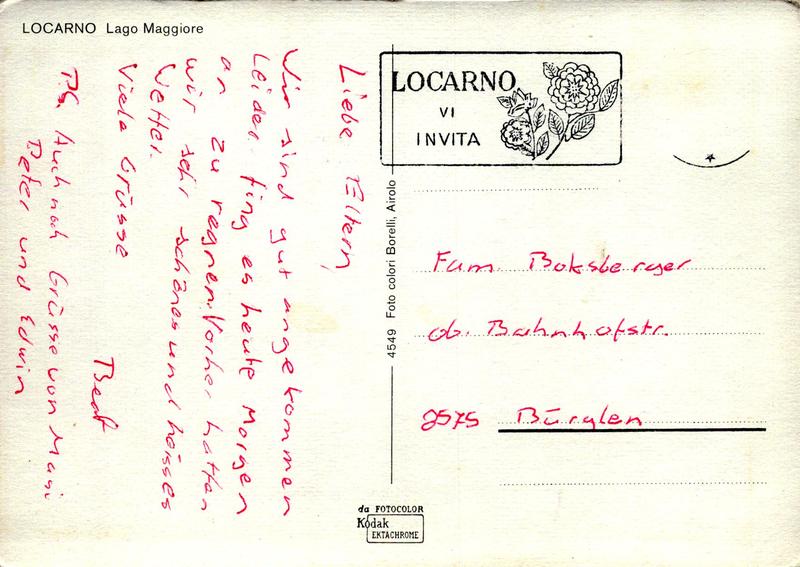 LOCARNO Lago Maggiore
Liebe Eltern,
Wir sind gut angekommen
Leider fing es heute Morgen
an zu regnen. Vorher hatten
wir sehr schönes und heisses
Wetter.
Viele Grüsse
Beat
P.S. Auch noch Grüsse von Mani
Peter und Edwin
4549 Foto colori Borelli, Airolo
LOCARNO
VI
INVITA
Fam. Boksberger
ob. Bahnhofstr.
8575 Bürglen
da FOTOCOLOR
Kodak
EKTACHROME